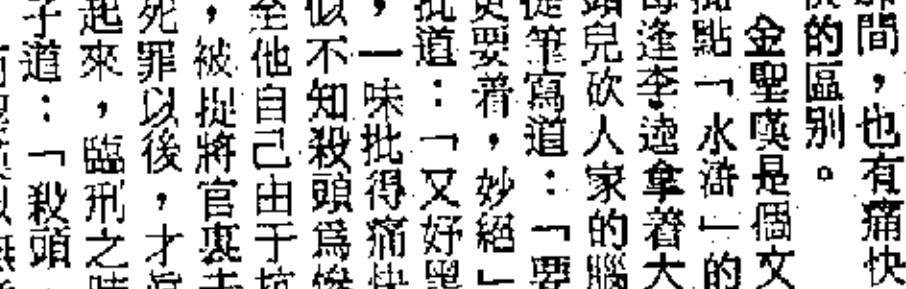 間，也有痛快
的區别。
金聖嘆是個文
點「水滸」的
每逢李逵拿着大
頭兒砍人家的腦
從筆寫道：「要
更要着，妙絕」
批道：「又好
，一味批得痛快
似不知殺頭爲
至他自己由于
，被捉將官裏去
死罪以後，才
起來，臨刑之時
子道：「殺頭